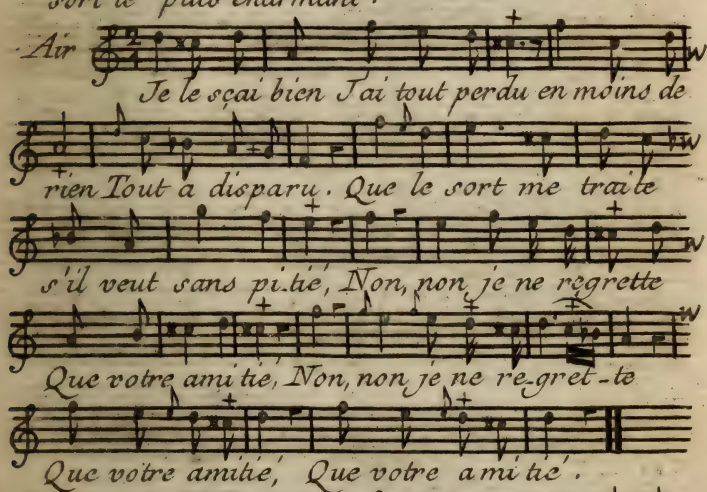 sort le plus charmant.
Air
Je le sçai bien J'ai tout perdu en moins de
rien Tout a disparu. Que le sort me traite
s'il veut sans pi-tié, Non, non je ne regrette
Que votre ami tié, Non, non je ne re-gret-te
Que votre amitié, Que votre ami tié.